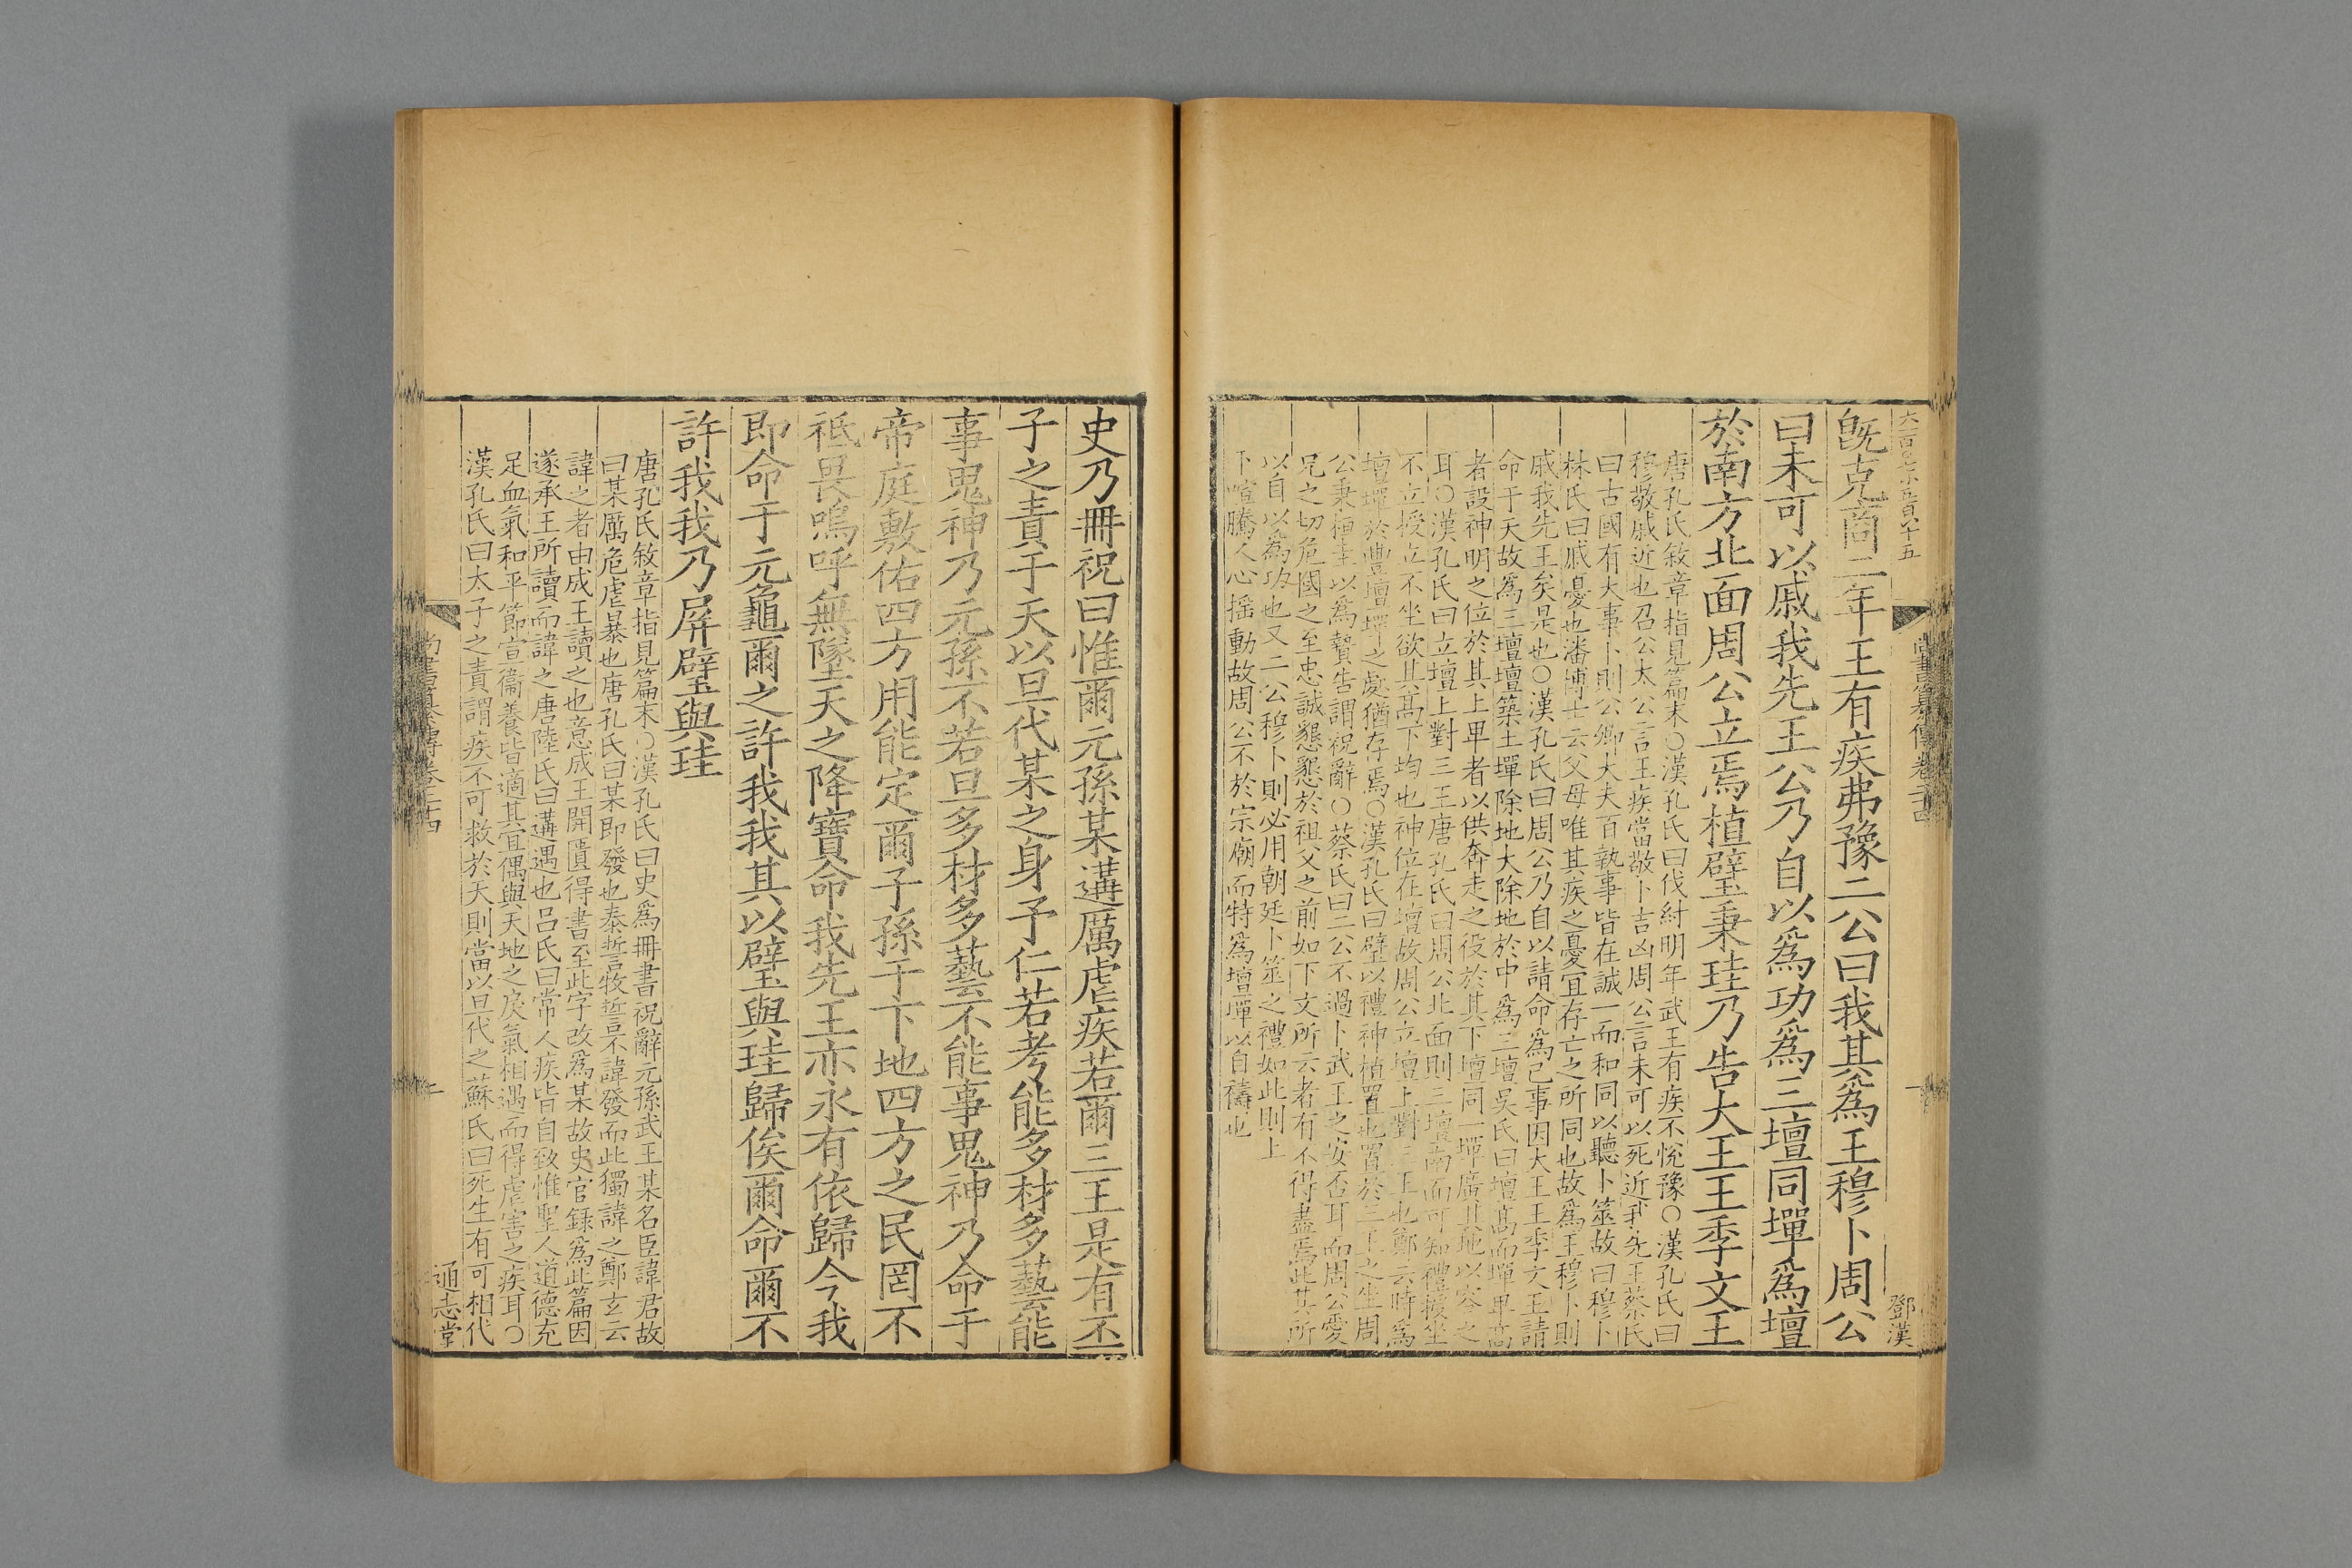 既克商二年王有疾弗豫二公曰我其爲王穆卜周公
曰未可以戚我先王公乃自以爲功爲三壇同墠爲壇
於南方北面周公立焉植璧秉珪乃告大王王季文王
唐孔氏敘章指見篇末○漢孔氏曰伐紂明年武王有疾不悅豫○漢孔氏曰
穆敬戚近也召公太公言王疾當敬卜吉凶周公言未可以死近我先王蔡氏
曰古國有大事卜則公卿大夫百執事皆在誠一而和同以聽卜筮故曰穆卜
林氏曰戚憂也潘博士云父母唯其疾之憂宜存亡之所同也故爲王穆卜則
戚我先王矣是也○漢孔氏曰周公乃自以請命爲己事因大王王季文王請
命于天故爲三壇壇築土墠除地大除地於中爲三壇吳氏曰壇高而墠卑高
者設神明之位於其上卑者以供奔走之役於其下壇同一墠廣其地以容之
耳○漢孔氏曰立壇上對三王唐孔氏曰周公北面則三壇南面可知禮授坐
不立授立不坐欲其高下均也神位在壇故周公立壇上對三王也鄭云時爲
壇墠於豐壇墠之處猶存焉○漢孔氏曰璧以禮神植置也置於三王之坐周
公秉桓圭以爲贄告謂祝辭○蔡氏曰二公不過卜武王之安否耳而周公愛
兄之切危國之至忠誠懇懇於祖父之前如下文所云者有不得盡焉此其所
以自以爲功也又二公穆卜則必用朝廷卜筮之禮如此則上
下喧騰人心搖動故周公不於宗廟而特爲壇墠以自禱也
鄧漢
史乃冊祝曰惟爾元孫某遘厲虐疾若爾三王是有丕
子之責于天以旦代某之身予仁若考能多材多藝能
事鬼神乃元孫不若旦多材多藝不能事鬼神乃命于
帝庭敷佑四方用能定爾子孫于下地四方之民罔不
祗畏嗚呼無墜天之降寶命我先王亦永有依歸今我
即命于元龜爾之許我我其以璧與珪歸俟爾命爾不
許我我乃屏璧與珪
唐孔氏敘章指見篇末○漢孔氏曰史爲冊書祝辭元孫武王某名臣諱君故
曰某厲危虐暴也唐孔氏曰某即發也泰誓牧誓不諱發而此獨諱之鄭玄云
諱之者由成王讀之也意成王開匱得書至此字改爲某故史官錄爲此篇因
遂承王所讀而諱之唐陸氏曰遘遇也呂氏曰常人疾皆自致惟聖人道德充
足血氣和平節宣衞養皆適其宜偶與天地之戾氣相遇而得虐害之疾耳○
漢孔氏曰太子之責謂疾不可救於天則當以旦代之蘇氏曰死生有可相代
通志堂